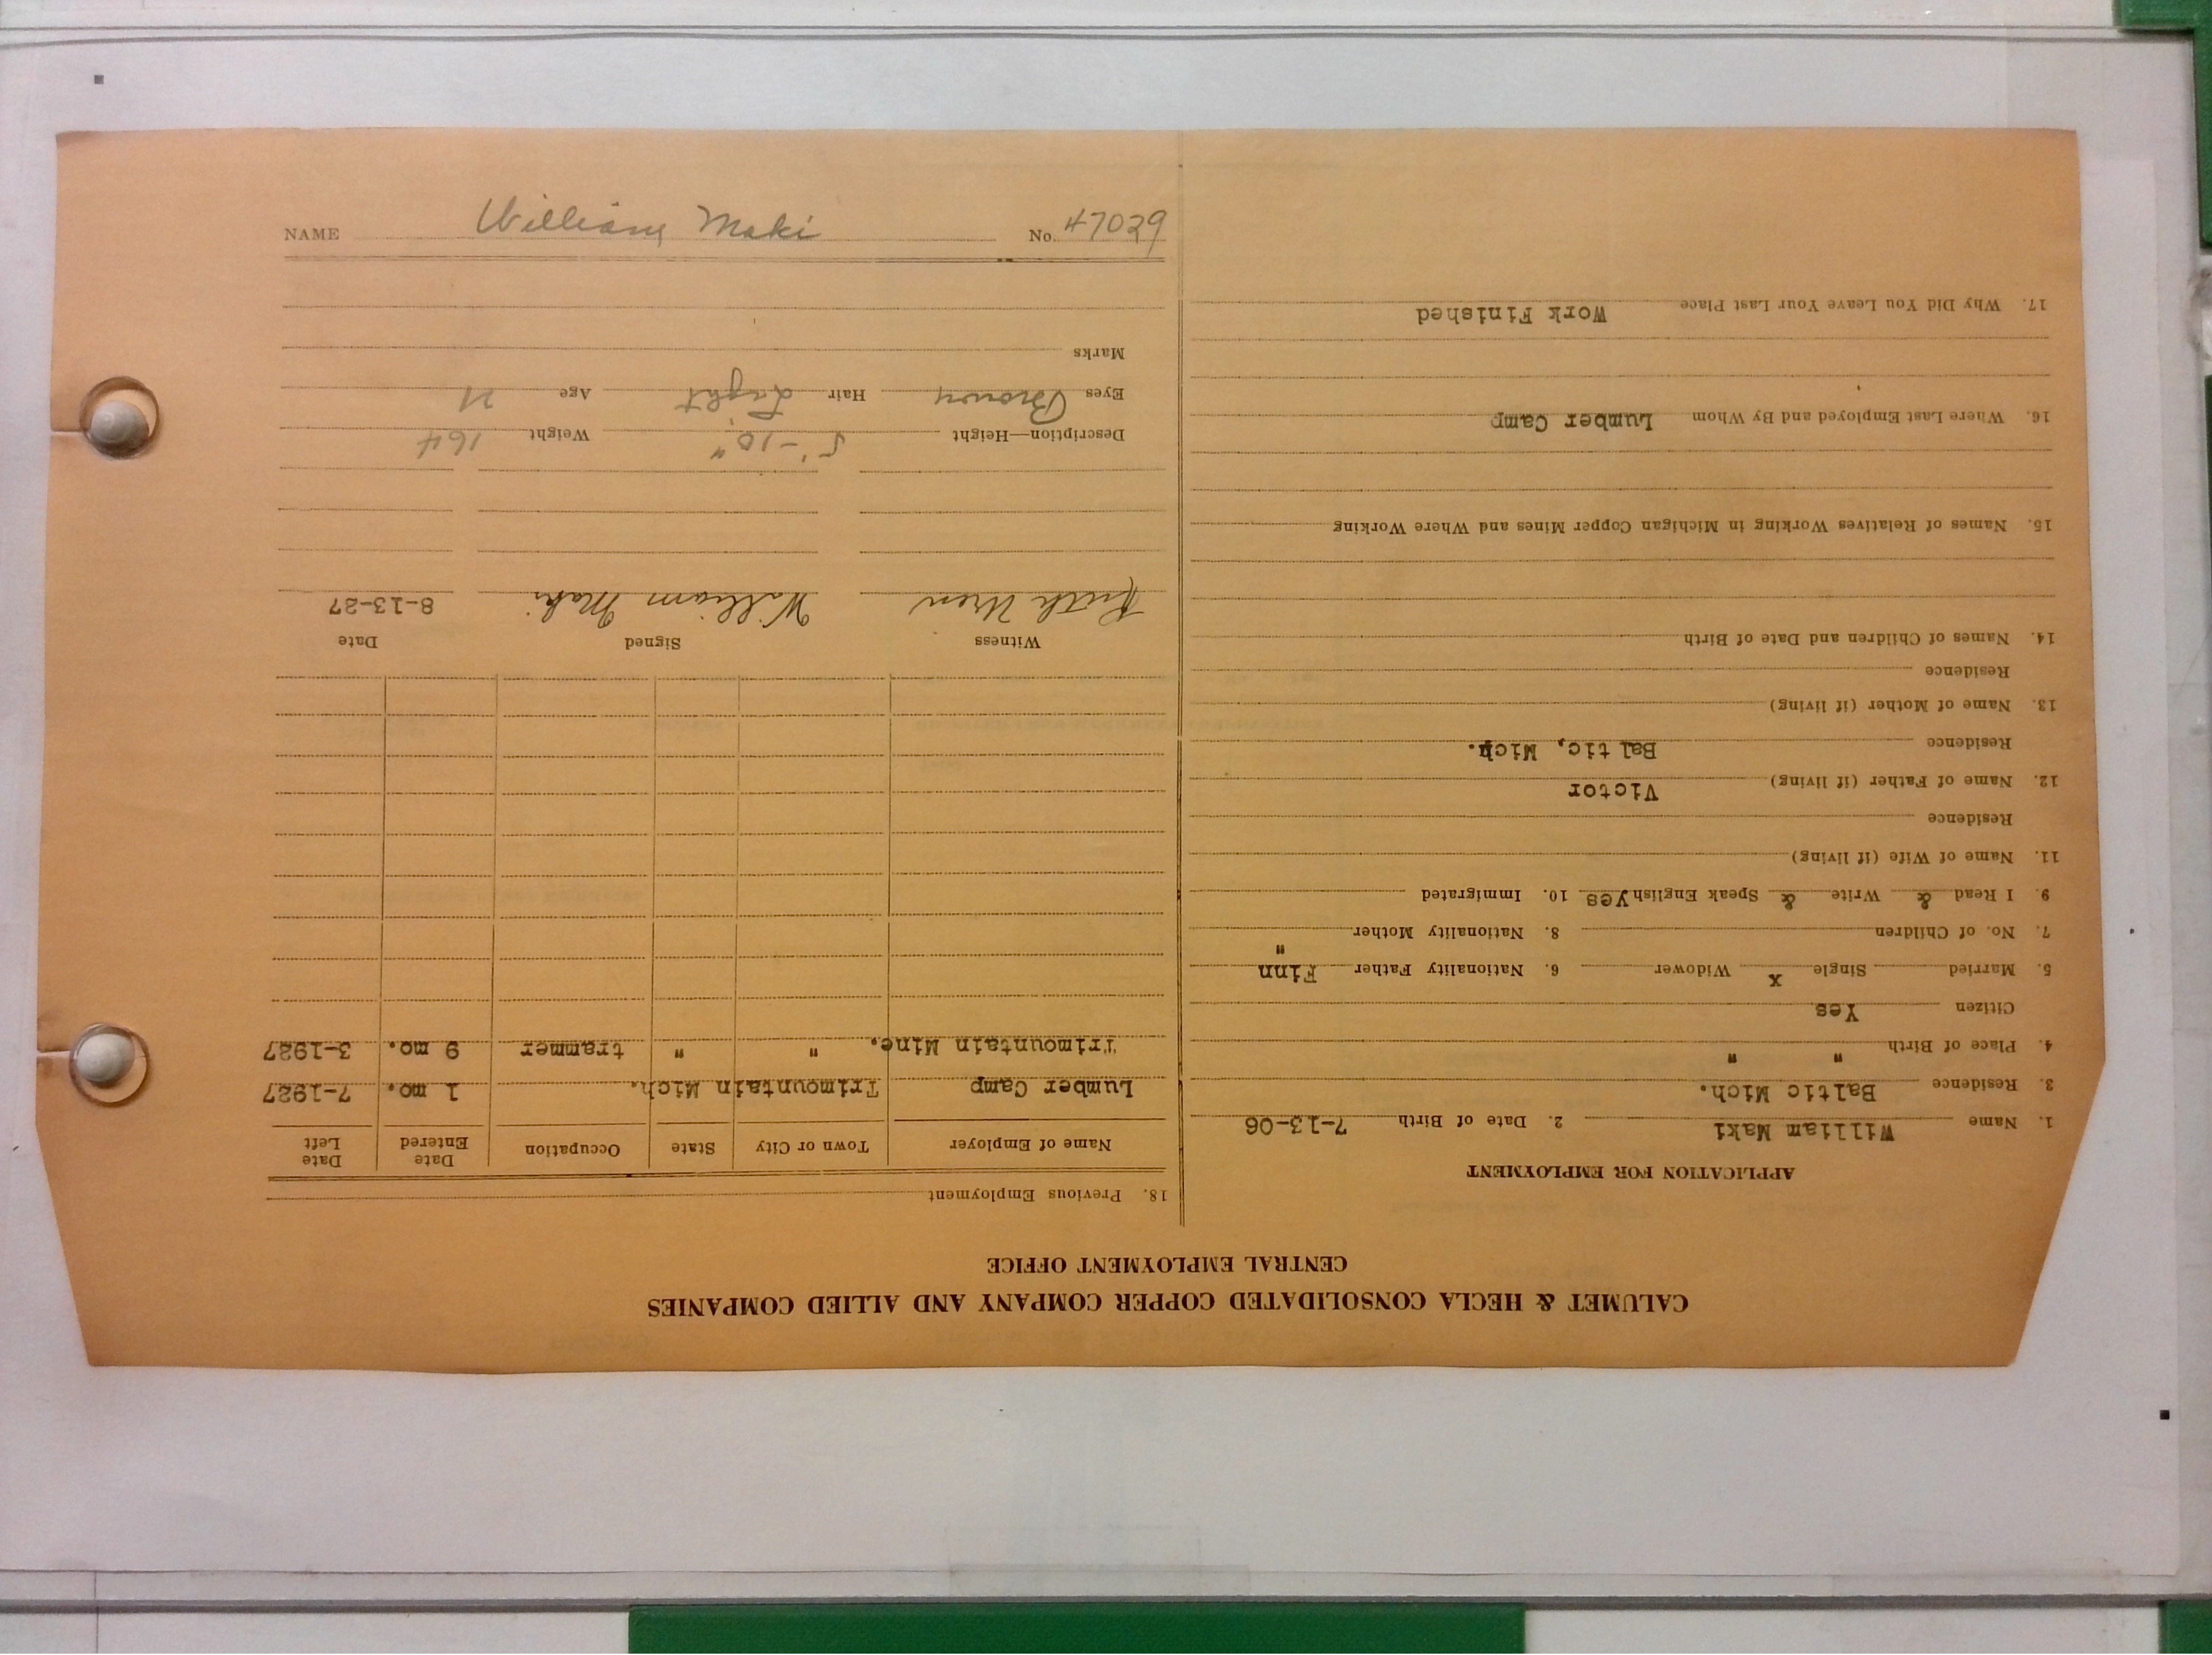 CALUMET & HECLA CONSOLIDATED COPPER COMPANY AND ALLIED COMPANIES
CENTRAL EMPLOYMENT OFFICE
APPLICATION FOR EMPLOYMENT
1. Name William Maki 2. Date of Birth 7-13-06
3. Residence Baltic Mich.
4. Place of Birth " "
Citizen Yes
5. Married Single x Widower 6. Nationality Father Finn
7. No. of Children 8. Nationality Mother "
9. I Read & Write & Speak English yes 10. Immigrated
11. Name of Wife (if living)
Residence
12. Name of Father (if living) Victor
Residence Baltic, Mich.
13. Name of Mother (if living)
Residence
14. Names of Children and Date of Birth
15. Names of Relatives Working in Michigan Copper Mines and Where Working
16. Where Last Employed and By Whom Lumber Camp
17. Why Did You Leave Your Last Place Work Finished
18. Previous Employment
Name of Employer Town or City State Occupation Date Entered Date Left
Lumber Camp Trimountain Mich. 1 mo. 7-1927
Trimountain Mine. " " trammer 9 mo. 3-1927
Witness Signed Date
Uren William Maki 8-13-27
Description—Height 5'-10" Weight 164
Eyes Brown Hair Light Age 21
Marks
NAME William Maki No. 47029